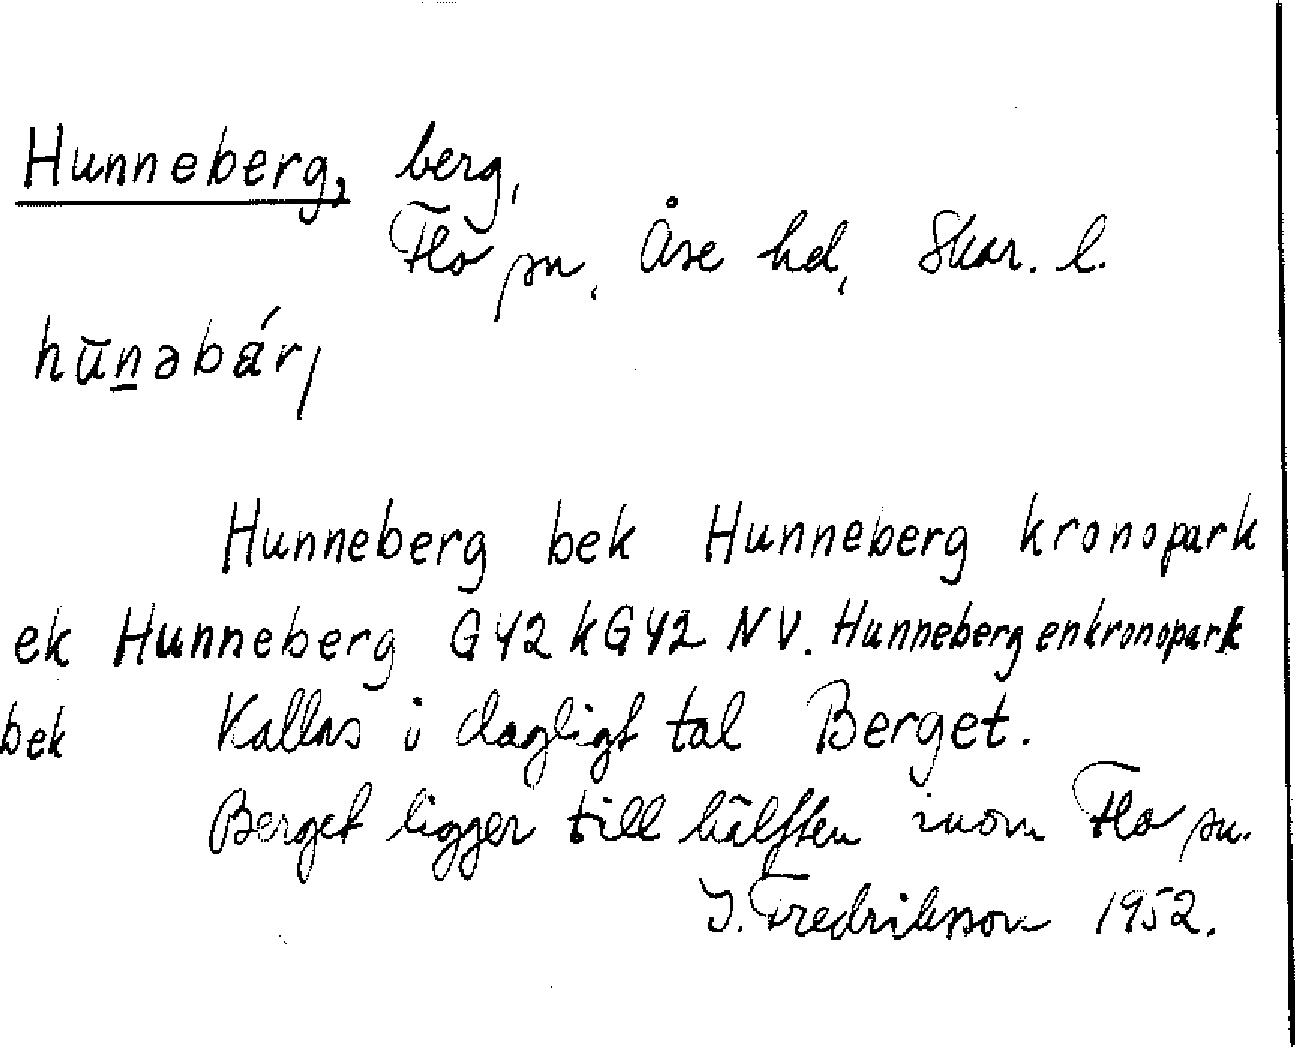 Hunneberg, berg,
Flo sn, Åse hd, Skar. l.
hūn̲əbár,
Hunneberg bek Hunneberg kronopark
ek Hunneberg G42 kG42 NV. Hunneberg enkronopark
bek Kallas i dagligt tal Berget.
Berget ligger till hälften inom Flo sn.
Y. Fredriksson 1952.